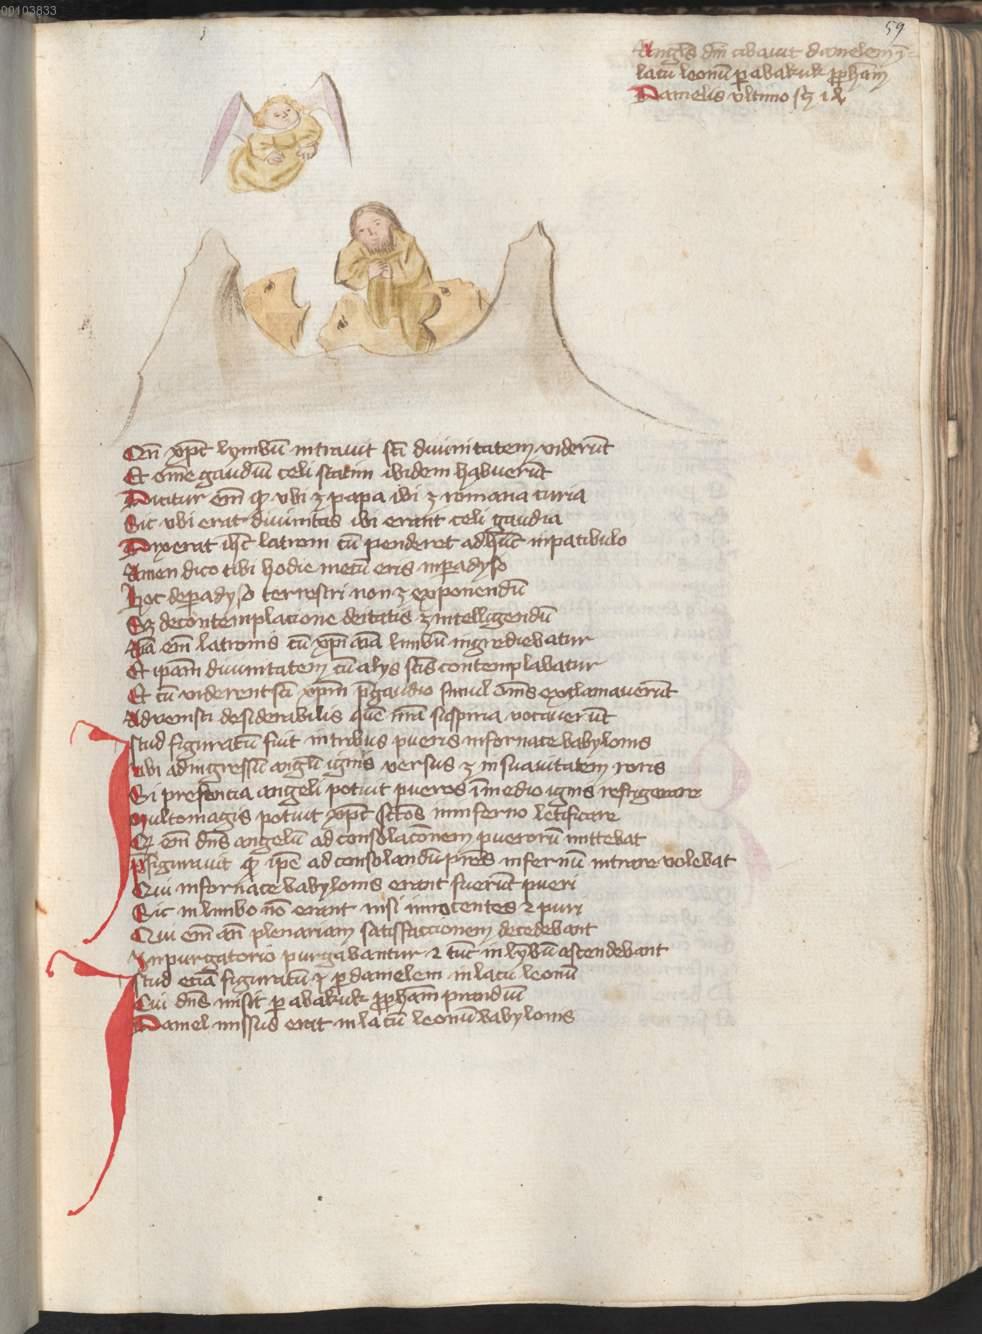 00103833
59
Angl̄s dn̄i cibavit danielem ī
lacu leonū ꝑ abakuk ꝓph̄am
Danielis vltimo
Qn̄ xp̄c lymbū intravit sc̄i divinitatem viderūt
Et om̄e gaudiū celi statim ibidem habuerūt
Dicitur em̄ ꝙ vbi ꝫ papa ibi ꝫ romana curia
Sic vbi erat divinitas ibi erant celi gaudia
Dixerat ih̄c latroni cū penderet adhuc in patibulo
Amen dico tibi hodie mecū eris in ꝑadyso
Hoc de ꝑadyso terrestri non ꝫ exponendū
Sꝫ de contemplacione deitatis ꝫ intelligendū
Aīa em̄ latronis cū xp̄i aīa limbū ingrediebatur
Et ip̄am divinitatem cū alys sc̄is contemplabatur
Et cū viderent sc̄i xp̄m p̄ gaudio simul om̄s exclamauerūt
Advenisti desiderabilis quē nr̄a suspiria vocauerūt
Istud figuratū fuit in tribus pueris in fornace babylonis
Vbi ad ingressū angl̄i ignis versus ꝫ in suauitatem roris
Si presencia angeli potuit pueros ī medio ignis refrigerare
Multomagis potuit xp̄c sc̄tos in inferno letificare
Qꝫ em̄ dn̄s angelū ad consolac̄onem puerorū mittebat
p̄figurauit ꝙ ip̄e ad consolandū pr̄es infernū intrare volebat
Qui in fornace babylonis erant fuerūt pueri
Sic in limbo nō erant nisi innocentes ⁊ puri
Qui em̄ an̄ plenariam satisfaccionem decedebant
In purgatorio purgabantur ⁊ tūc in lȳbū ascendebant
Istud etiā figuratū ꝫ ꝑ danielem in lacu leonū
Cui dn̄s misit ꝑ abakuk ꝓph̄am prandiū
Daniel missus erat in lacū leonū babylonis